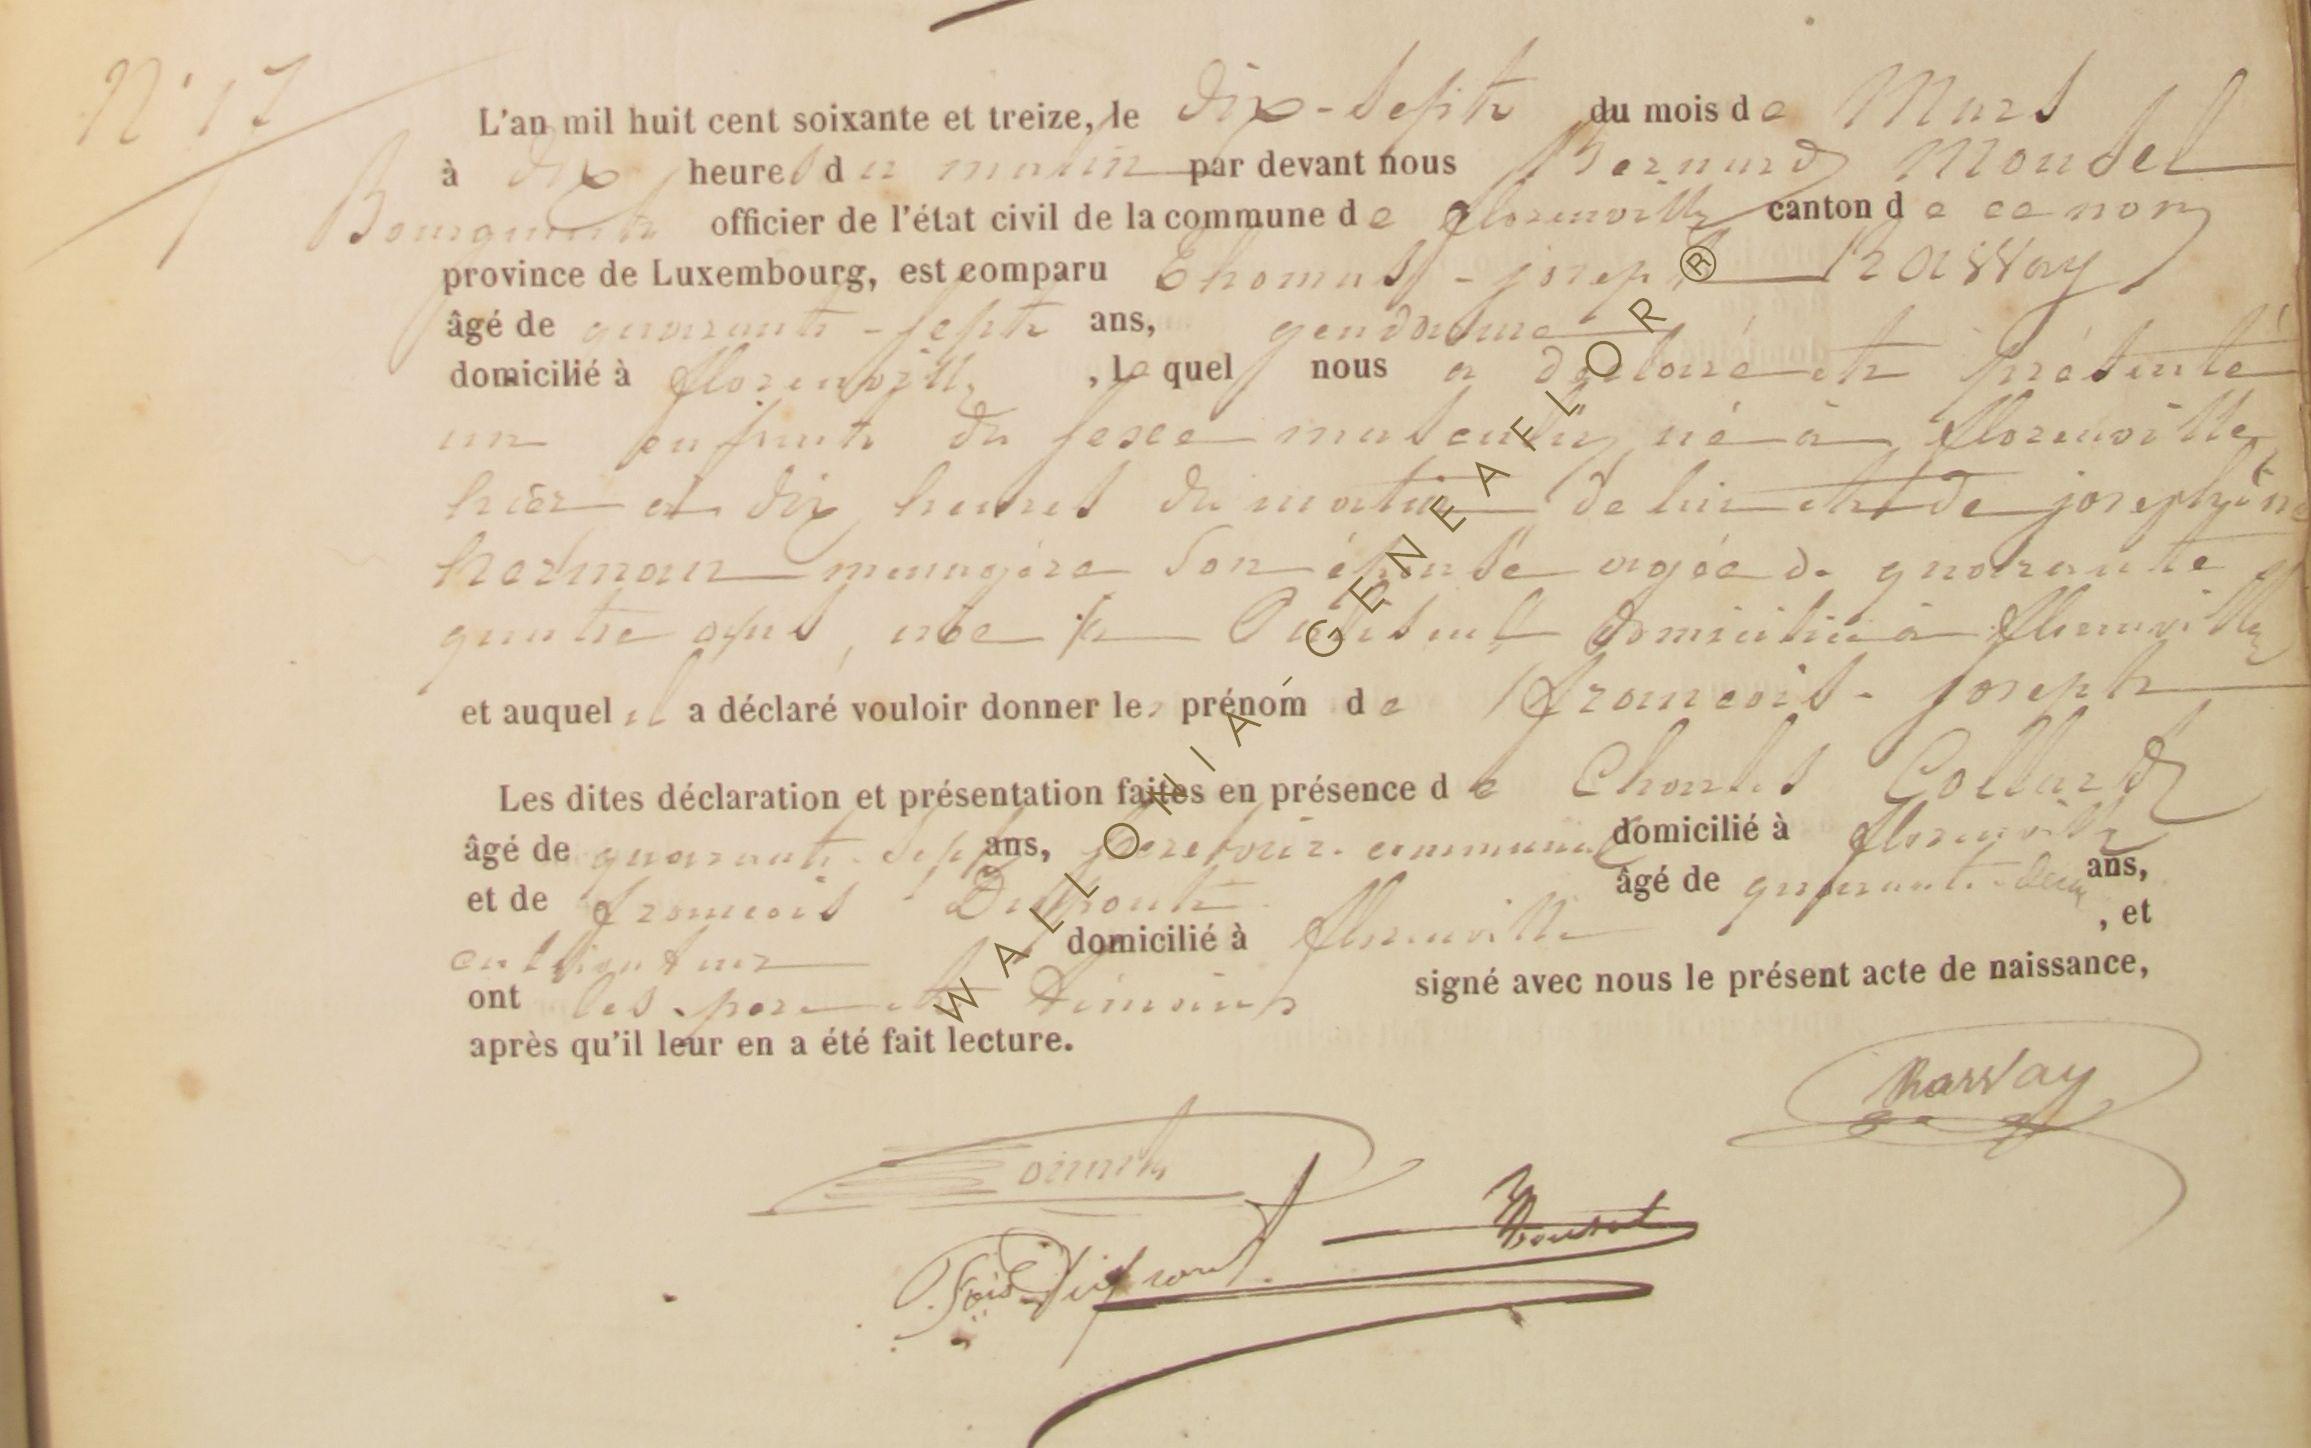 N° 17
L'an mil huit cent soixante et treize, le dix-sept du mois de Mars
à dix heures du matin par devant nous Bernard Mousel
Bourgmestre officier de l'état civil de la commune de florenville canton de ce nom
province de Luxembourg, est comparu Thomas-joseph Rassay
âgé de quarante-sept ans, gendarme
domicilié à florenville, Lequel nous a déclaré et présenté
un enfant du sexe masculin né à florenville,
hier à dix heures du matin de lui et de josephine
herman menagère son épouse agée de quarante
quatre ans, née à domiciliée à florenville
et auquel il a déclaré vouloir donner les prénom de françois-joseph
Les dites déclaration et présentation faites en présence de Charles Collard
âgé de quarante-sept ans, receveur communal domicilié à florenville
et de françois Dupont âgé de quarante-deux ans,
cultivateur domicilié à florenville, et
ont les père et témoins signé avec nous le présent acte de naissance,
après qu'il leur en a été fait lecture.
Rassay
Fois Dupont
Mousel
WALLONIA, GENEAFLOR®